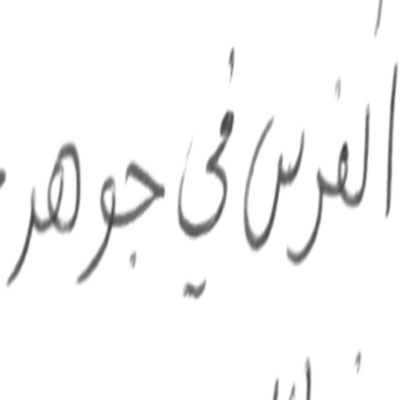 الفرس في جوهر